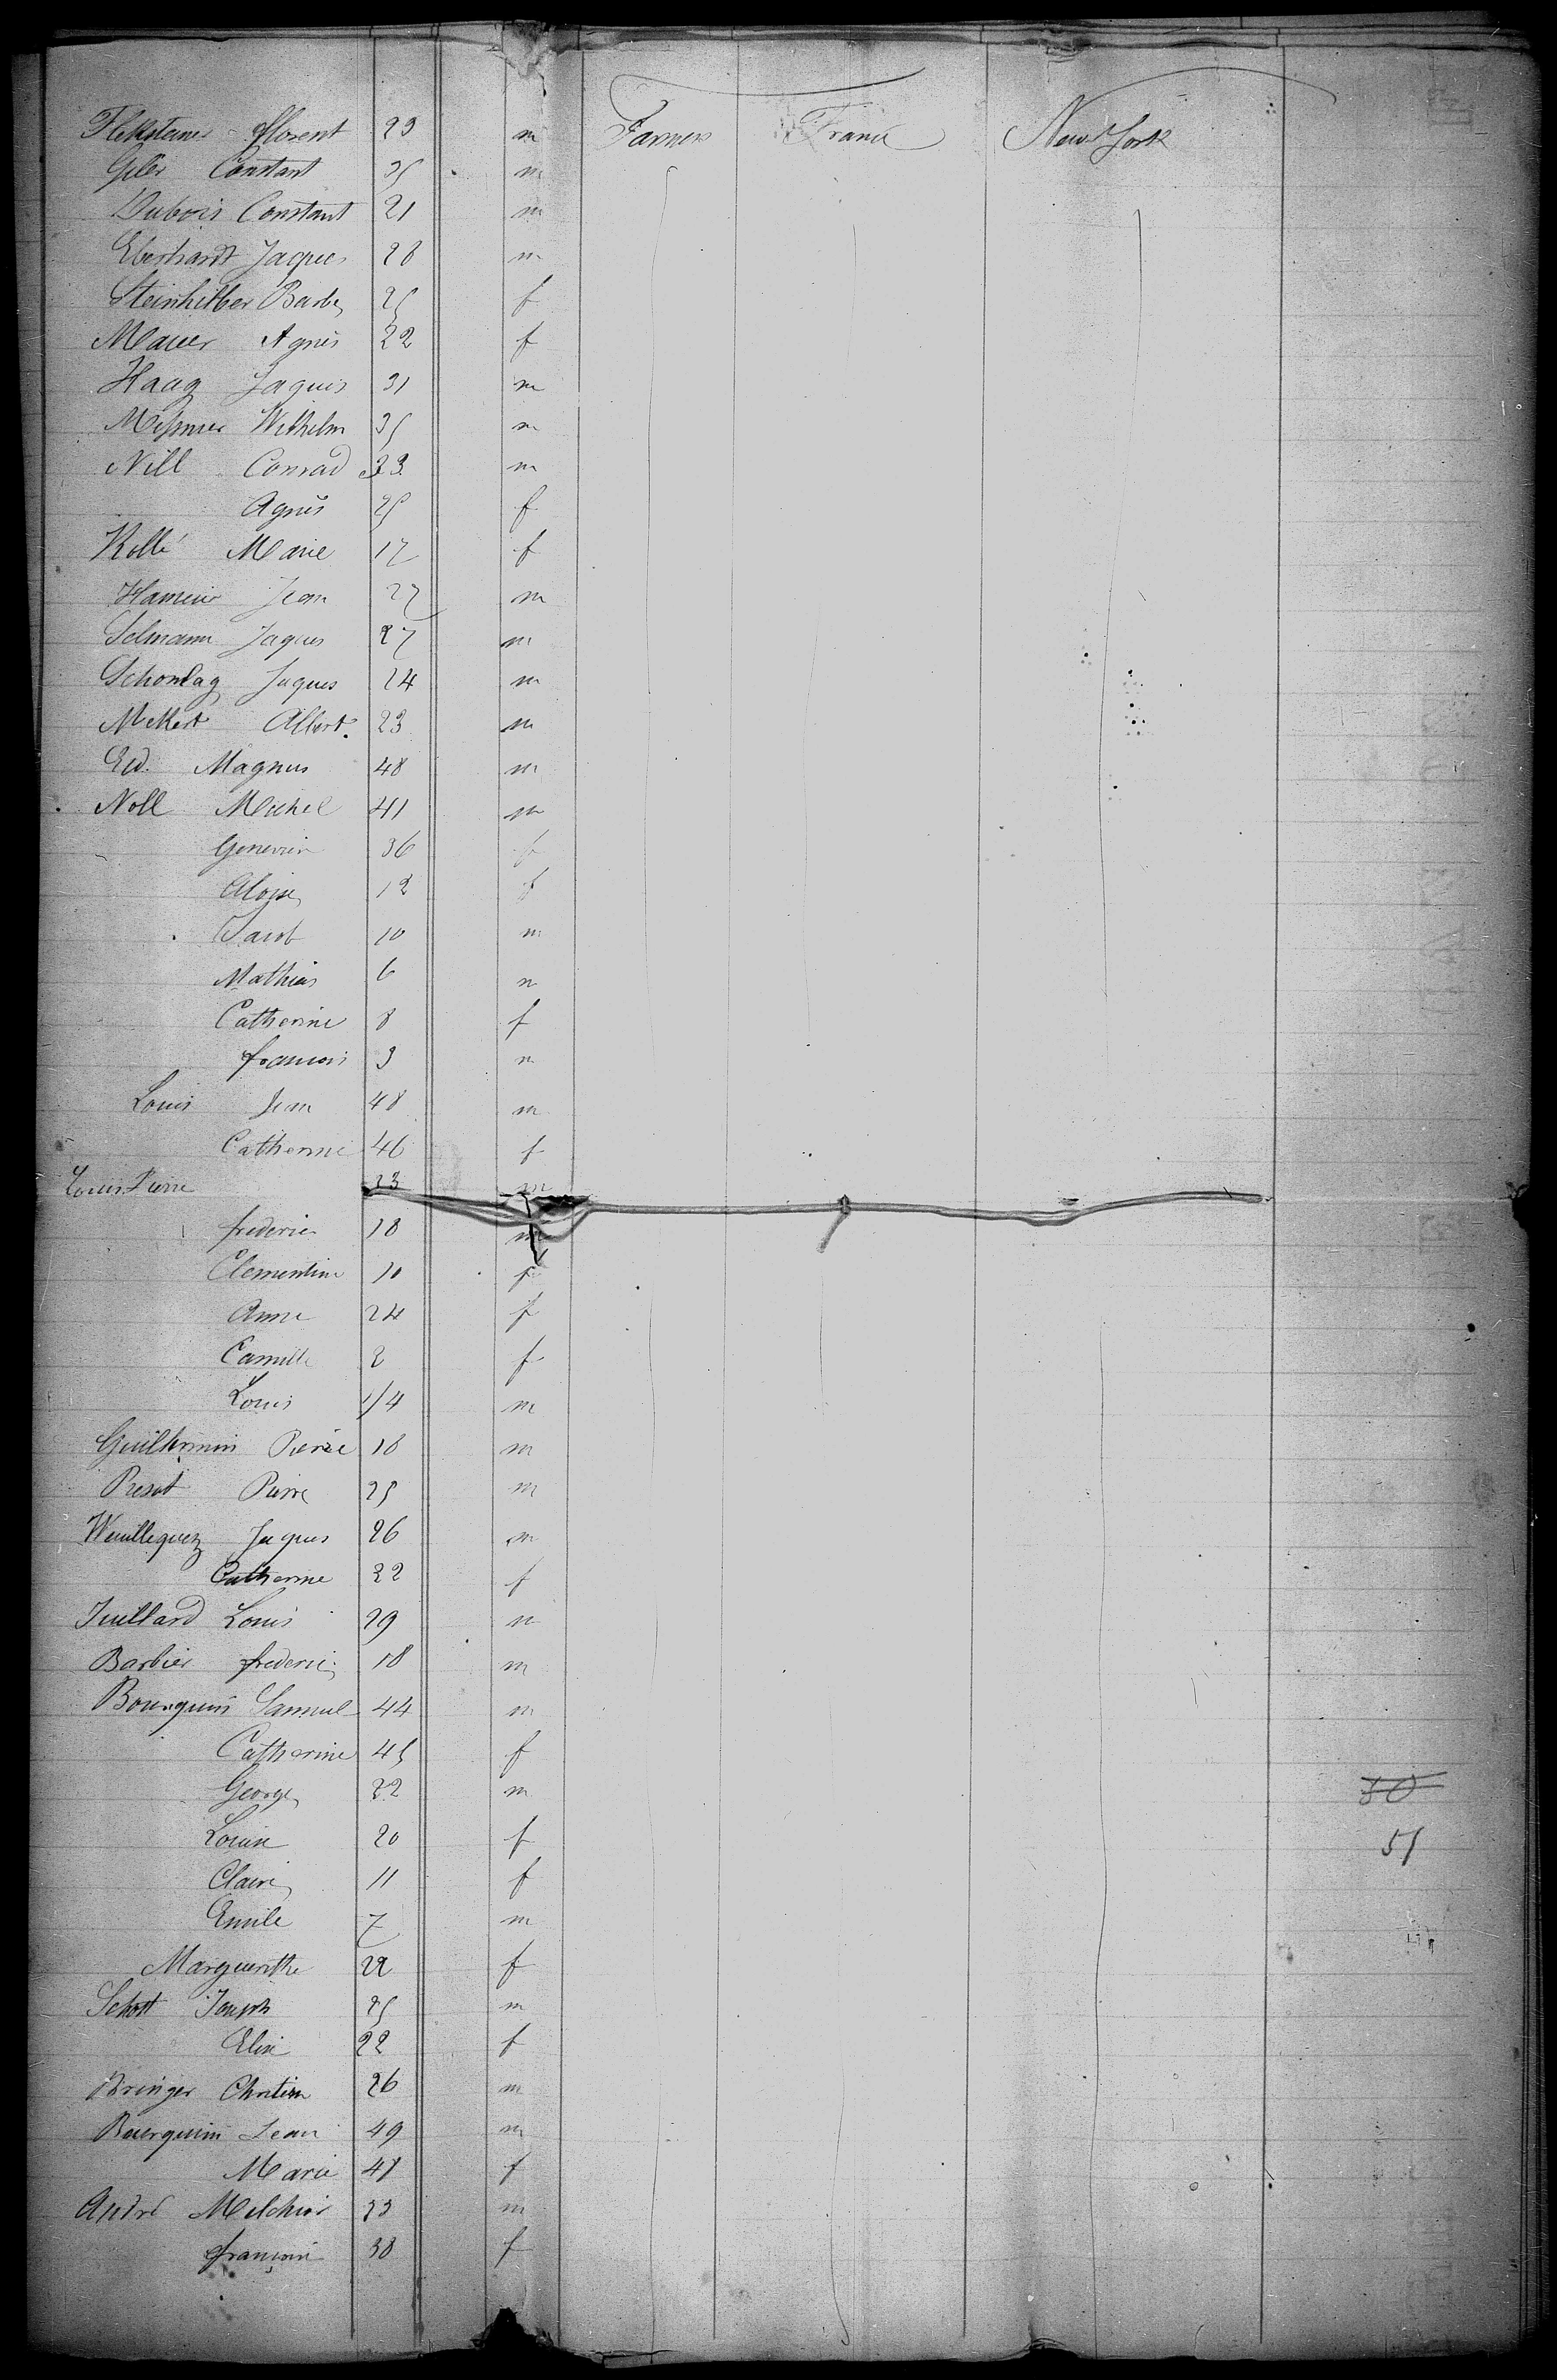 Florent 23 m Farmers France New York
Giler Constant 35 m
Dubois Constant 21 m
Eberhardt Jaques 28 m
Steinhilber Barbe 25 f
Mauer Agnes 22 f
Haag Jaques 31 m
Messmer Wilhelm 35 m
Nill Conrad 33 m
Agnes 25 f
Kollé Marie 17 f
Jean 27 m
Selmann Jaques 27 m
Schonlag Jaques 24 m
Albert 23 m
Ed. Magnus 48 m
Noll Michel 41 m
36 f
Aloise 12 f
Jacob 10 m
Mathias 6 m
Catherine 8 f
francois 3 m
Louis Jean 48 m
Catherine 46 f
Louis Pierre 23 m
frederic 18 m
Clementine 10 f
Anne 24 f
Camille 2 f
Louis 1/4 m
Guillermin Pierre 18 m
Presot Pierre 25 m
Jaques 26 m
Catherine 22 f
Juillard Louis 29 m
Barbier frederic 18 m
Bourquin Samuel 44 m
Catherine 45 f
George 22 m 50
Louise 20 f 51
Claire 11 f
Emile 7 m
Marguerithe 22 f
Schott Joseph 25 m
Elise 22 f
Bringer Christian 26 m
Bourquin Jean 49 m
Marie 48 f
André Melchior 33 m
françoise 38 f